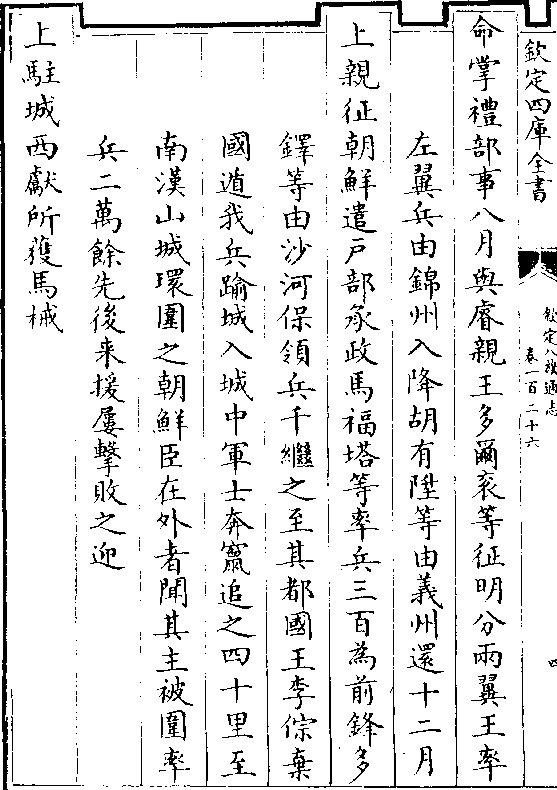 欽定四庫全書
欽定八旗通志
卷一百三十六
四
命掌禮部事八月與睿親王多爾袞等征明分兩翼王率
左翼兵由錦州入降胡有陞等由義州還十二月
上親征朝鮮遣戶部承政馬福塔等率兵三百為前鋒多
鐸等由沙河保領兵千繼之至其都國王李倧棄
國遁我兵踰城入城中軍士奔竄追之四十里至
南漢山城環圍之朝鮮臣在外者聞其主被圍率
兵二萬餘先後来援屢擊敗之迎
上駐城西獻所獲馬械